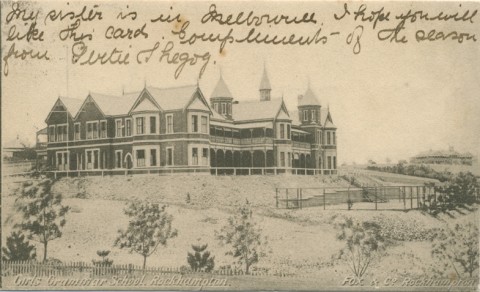 My sister is in Melbourne. I hope you will
like this card. Compliments of the season
from Gertie Thegog.
Girls Grammar School, Rockhampton.
Fox & Co. Rockhampton